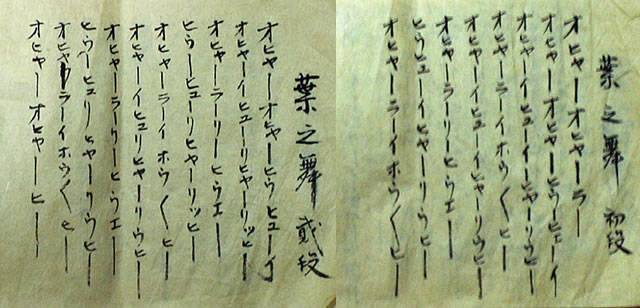 葉之舞 初段
オヒャーオヒャーラー
オヒャーオヒャーヒウヒューイ
オヒャーイヒューイヒャーリウヒー
オヒャーラーイホウ〱ヒー
オヒャーイヒューイヒャーリウヒー
オヒャーラーリーヒウエー
ヒウヒューイヒャーリウヒー
オヒャーラーイホウ〱ヒー
葉之舞 貳段
オヒャーオヒャーヒウヒューイ
オヒャーイヒューリヒャーリッヒー
オヒャーラーリーヒウエー
ヒウーヒューリヒャーリッヒー
オヒャーラーイホウ〱ヒー
オヒャーイヒュリヒャーリウヒー
オヒャーラーリーヒウエー
ヒウーヒュリヒャーリウヒー
オヒャラーイホウ〱ヒー
オヒャーオヒャーヒー